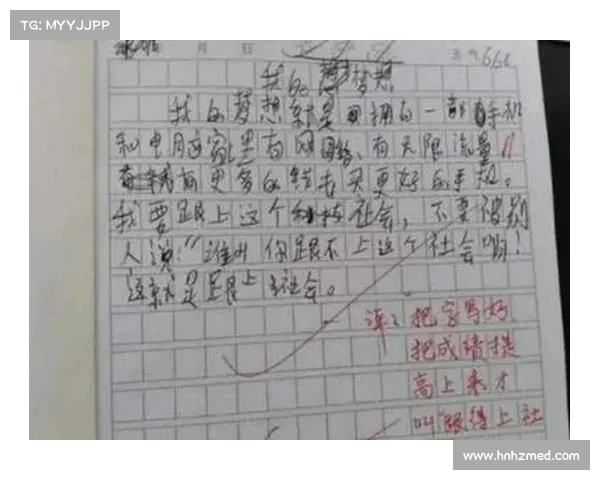 TG: MYYJJPP
月 日
666
我的梦想
我的梦想就是拥有一部手机
和电脑家里有网络、有无限流量。
有更多的钱去买更好的手机。
我要跟上这个社会，不要被别
人说："谁叫你跟不上这个社会哟！
这就是跟上社会。
评：把字写好
把成绩提
高上来才
叫"跟得上社
www.hnhzmed.com